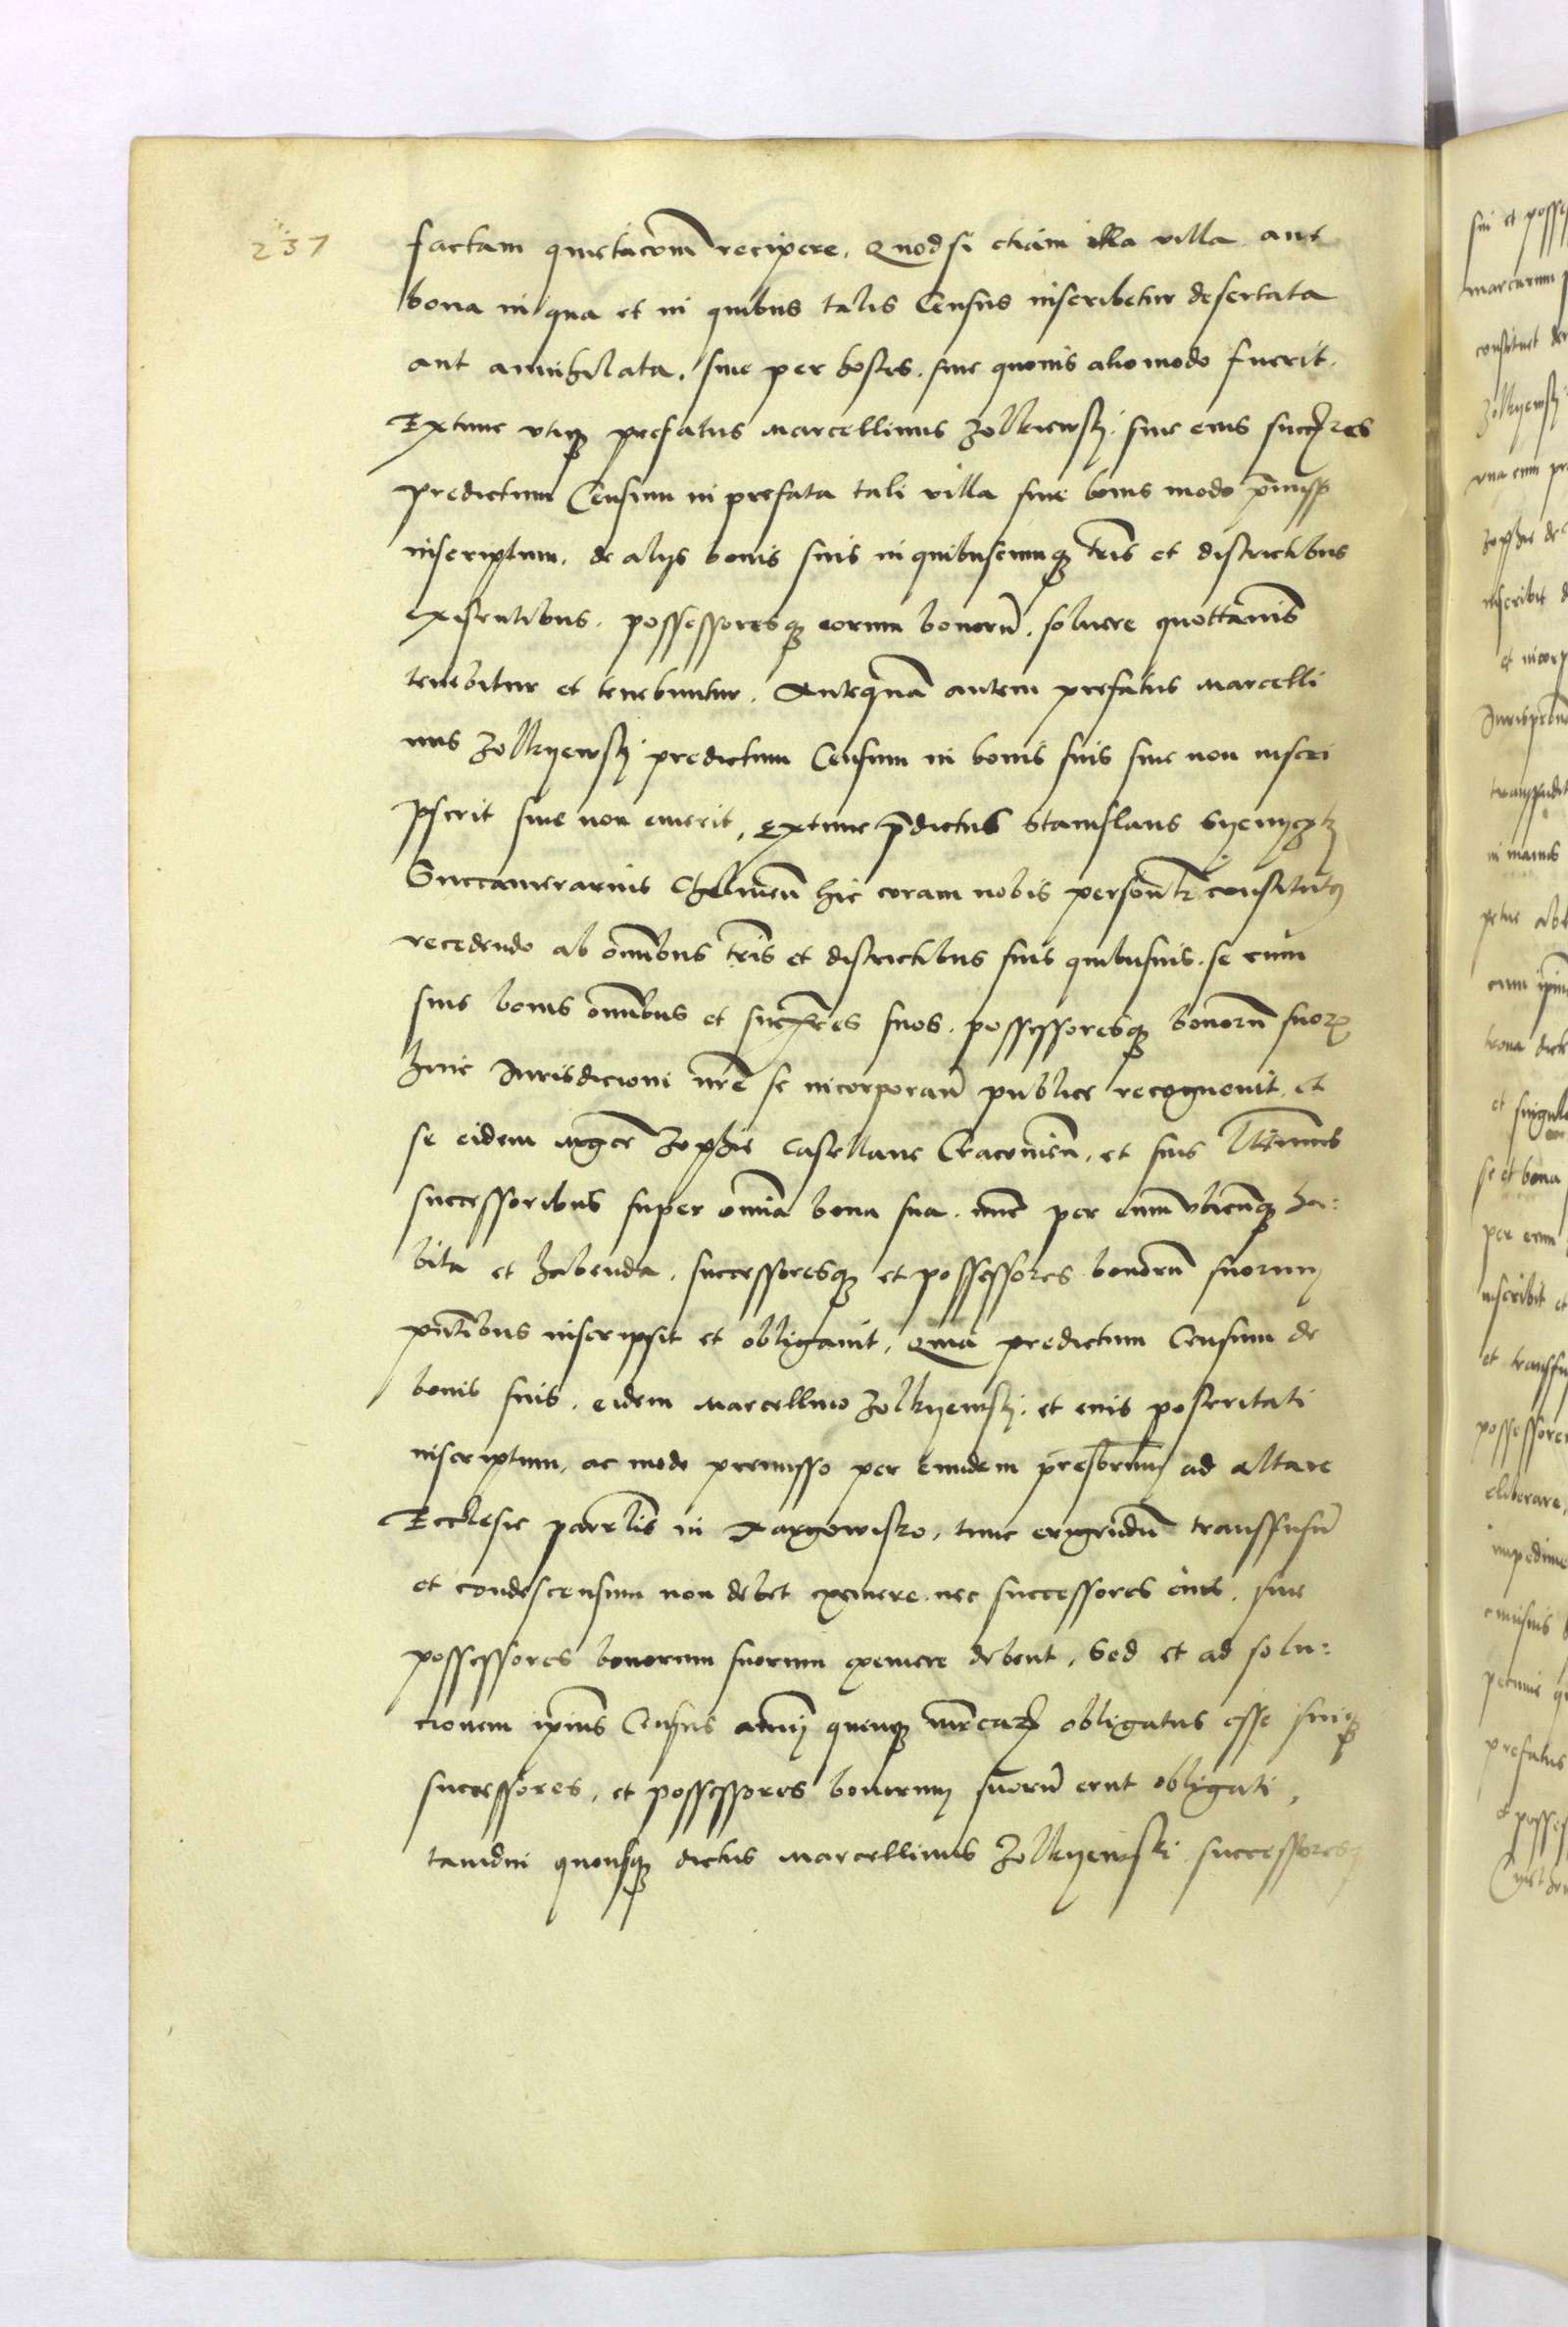 237
factam quietacom recipere. Quodsi etiam illa villa aut
bona in qua et in quibus talis Census inscribetur desertata
aut annihilata. siue per hostes. siue quouis aliomodo fuerit.
Extunc vtiqz prefatus Marcellinus Zolkiewskj. siue eius successores
predictum Censum in prefata tali villa siue bonis modo pmisso
inscriptum. de alijs bonis suis in quibuscumqz tris et districtibus
existentibus. possessoresqz eorum bonoru. soluere quottannis
tenebitur et tenebuntur. Antequam autem prefatus Marcelli
nus Zolkyewskj predictum Censum in bonis suis siue non inscri
pserit siue non emerit, extunc pdictus Stanislaus Syenyczkj
Succamerarius Chelmen hic coram nobis personlr constitutus
recedendo ab omnibus tris et districtibus suis quibusuis. se cum
suis bonis omnibus et successores suos. possessoresqz bonoru suor
huic Jurisdicioni nre se incorporan publice recognouit. et
se eidem Mgce Zophie Castellane Cracouien. et suis ltimis
successoribus super omnia bona sua. nunc per eum vbicunqz ha:
bita et habenda. successoresqz et possessores bonoru suorum
pntibus inscripsit et obligauit. Quia predictum Censum de
bonis suis. eidem Marcellino Zolkyewskj. et eius posteritati
inscriptum. ac modo premisso per eundem presbrum ad altare
Ecclesie parrlis in Targowisko. tunc erigendu transfusu
et condescensum non debet exemere. nec successores eius. siue
possessores bonorum suorum exemere debent. Sed et ad solu:
cionem ipius Census annij quinqz mrcar obligatus esse suiqz
successores. et possessores bonorum suoru erut obligati,
tamdiu quousqz dictus Marcellinus Zolkyewski successoresqz